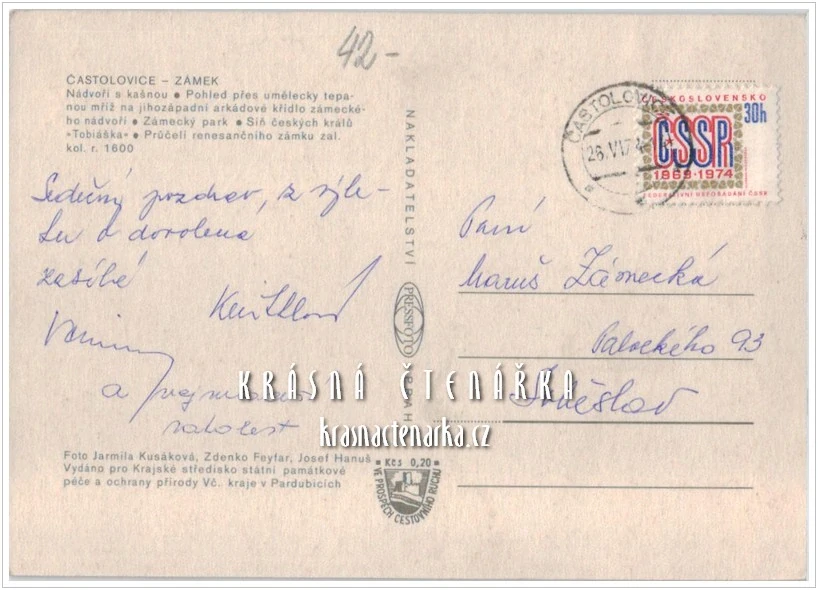 42-
ČASTOLOVICE – ZÁMEK
Nádvoří s kašnou ● Pohled přes umělecky tepa-
nou mříž na jihozápadní arkádové křídlo zámecké-
ho nádvoří ● Zámecký park ● Síň českých králů
»Tobiáška« ● Průčelí renesančního zámku zal.
kol. r. 1600
pozdrav, z výle-
tu a dovolena
zasílá
a
ratolest
Foto Jarmila Kusáková, Zdenko Feyfar, Josef Hanuš
Vydáno pro Krajské středisko státní památkové
péče a ochrany přírody Vč. kraje v Pardubicích
NAKLADATELSTVÍ
PRESSFOTO
PRAHA
Kčs 0,20
VE PROSPĚCH CESTOVNÍHO RUCHU
ČASTOLOVICE
26.VI.74
ČESKOSLOVENSKO
30h
ČSSR
1969-1974
FEDERATIVNÍ USPOŘÁDÁNÍ ČSSR
Paní
Maruš Zámecká
Palackého 93
KRÁSNÁ ČTENÁŘKA
krasnactenarka.cz